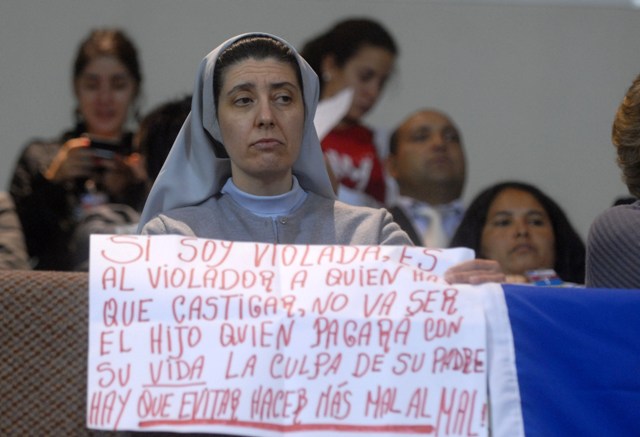 SI SOY VIOLADA, ES
AL VIOLADOR A QUIEN HA
QUE CASTIGAR, NO VA SER
EL HIJO QUIEN PAGARA CON
SU VIDA LA CULPA DE SU PADRE
HAY QUE EVITAR HACER MÁS MAL AL MAL!